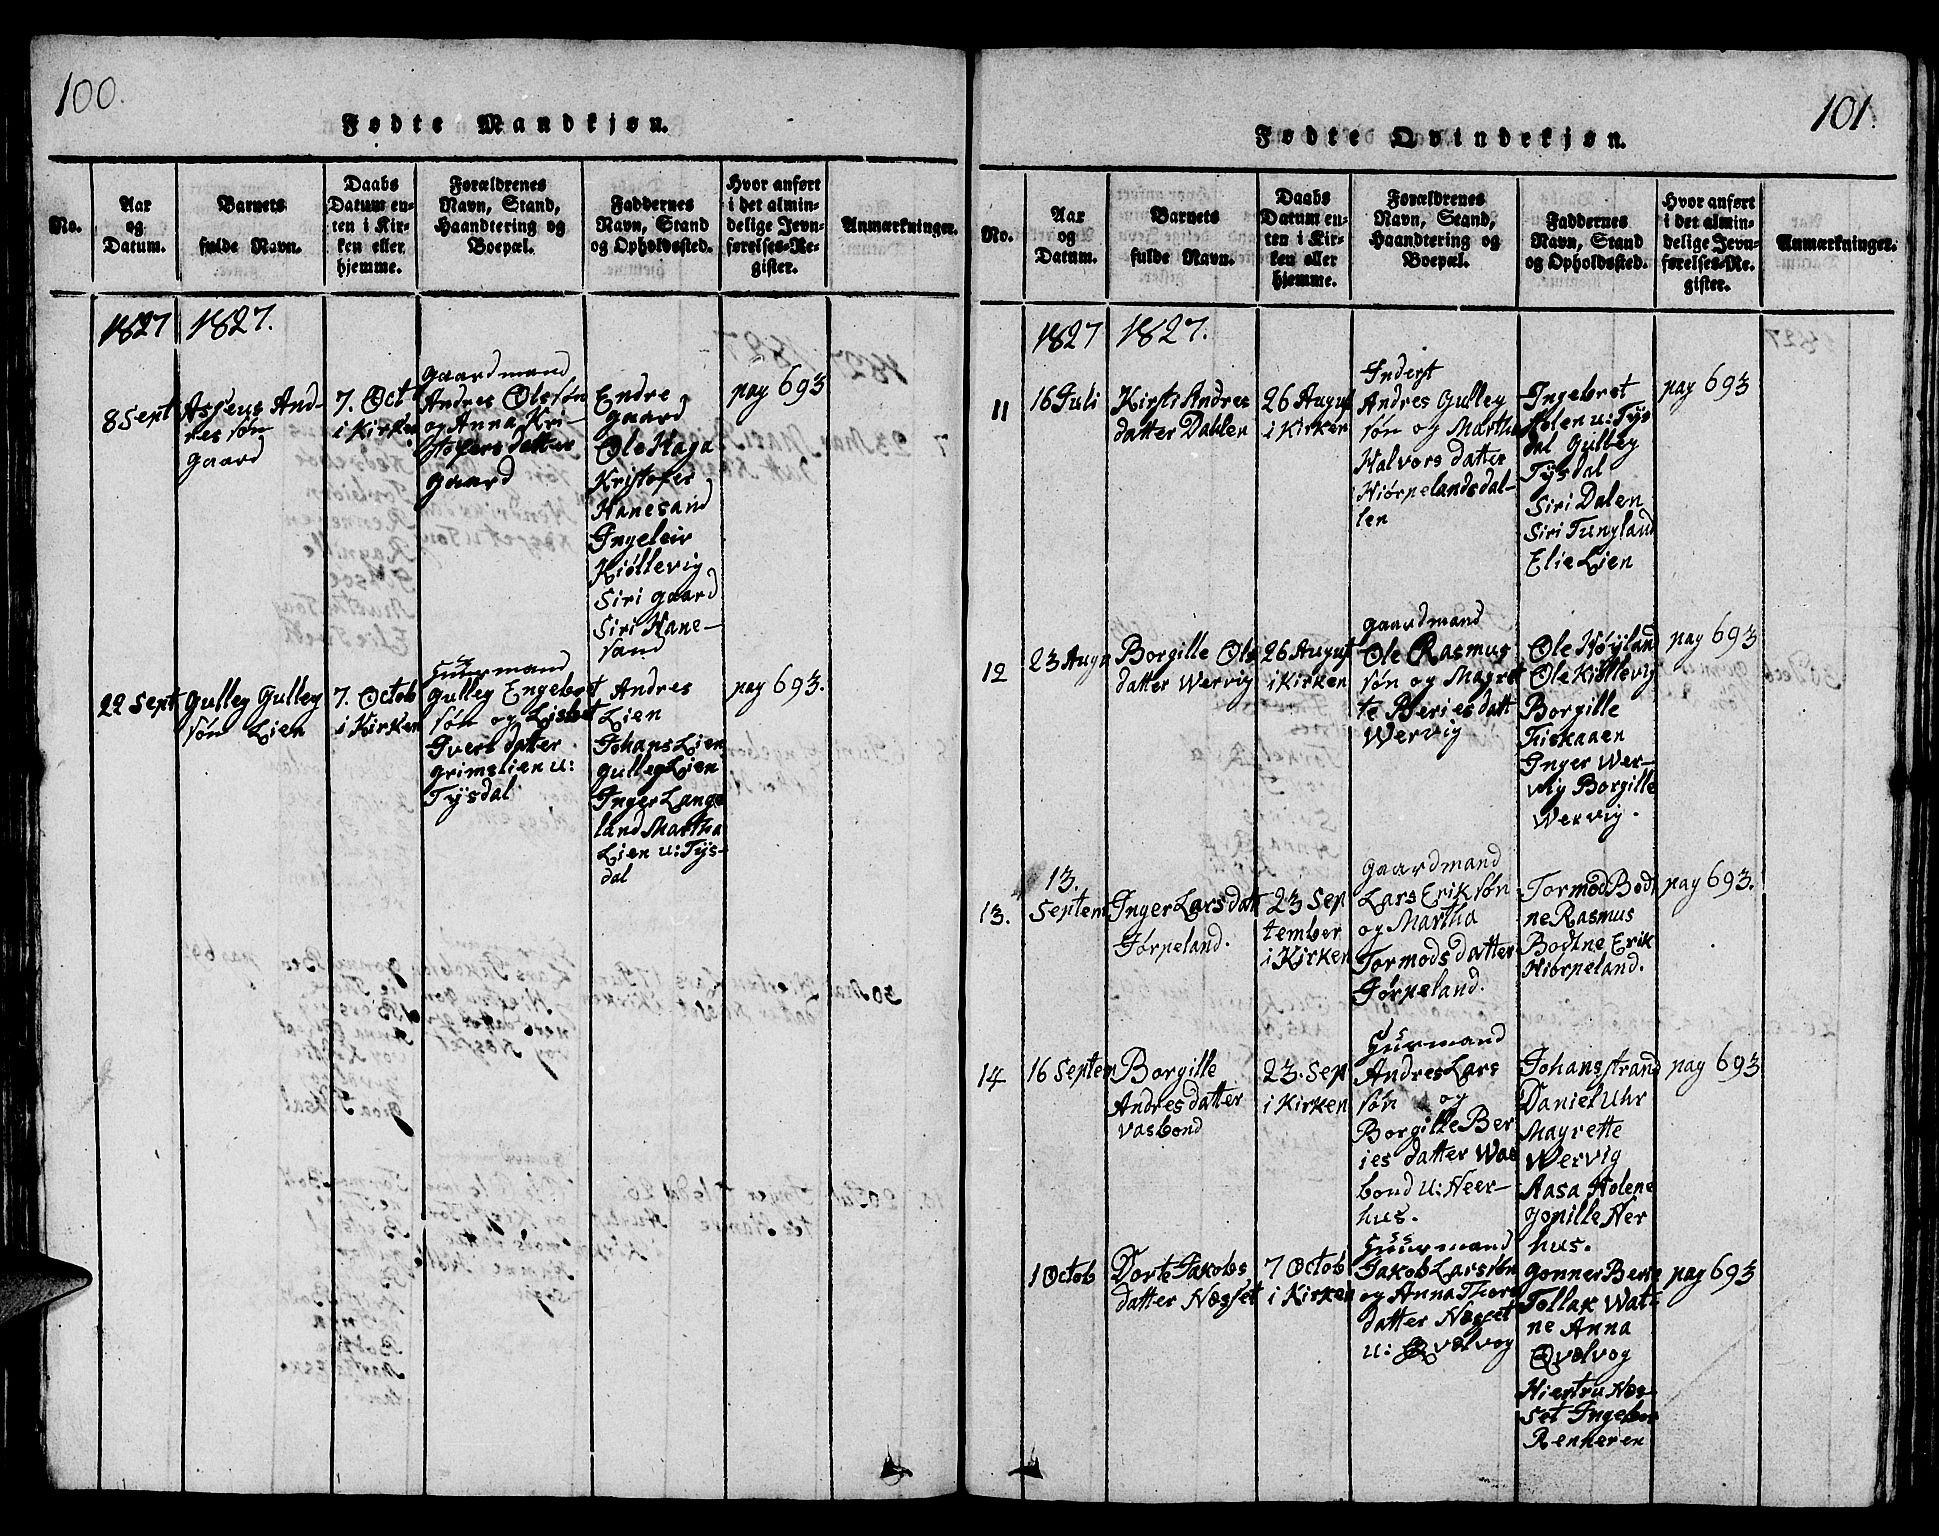 100.
Fødte Mandkjøn.
No.
Aar
og
Datum.
Barnets
fulde Navn.
Daabs
Datum en-
ten i Kir-
ken eller
hjemme.
Forældrenes
Navn, Stand,
Haandtering og
Boepæl.
Faddernes
Navn, Stand
og Opholdssted.
Hvor anført
i det almin-
delige Jevn-
førelses-Re-
gister.
Anmærkninger.
1827
1827.
8 Sept
Andres søn
gaard
7. Oct
i Kirken
gaardmand
Andres Olssøn
og Anna Kri-
stofers datter
gaard
Endre
gaard
Ole Haga
Kristofer
Hanesand
Ingeleiv
Kiøllevig
Siri gaard
Siri Hane-
sand
pag 693
22 Sept
Gulleg Gulleg
søn Lien
7. Octob
i Kirken
Huusmand
Gulleg Engebret
søn og Lisbet
Ivers datter
Grimslien u:
Tÿsdal
Andres
Lien
Johans Lien
Gulleg Lien
Inger Lange
land Martha
Lien u: Tÿs-
dal
pag 693.
101.
Fødte Qvindekjøn.
No.
Aar
og
Datum.
Barnets
fulde Navn.
Daabs
Datum en-
ten i Kir-
ken eller
hjemme.
Forældrenes
Navn, Stand,
Haandtering og
Boepæl.
Faddernes
Navn, Stand
og Opholdssted.
Hvor anført
i det almin-
delige Jevn-
førelses-Re-
gister.
Anmærkninger.
1827
1827.
11
16 Juli
Kirsti Andres
datter Dahlen
26 August
i Kirken
Inderst
Andres Gulleg
søn og Martha
Halvors datter
Hiørpelandsdal-
len
Ingebret
Holen u: Tÿs
dal Gulleg
Tÿsdal
Siri Dalen
Siri Tungland
Elie Lien
pag 693
12
23 Augu
Borgille Ols
datter Wervig
26 August
i Kirken
gaardmand
Ole Rasmus
søn og Magret
te Beries datt
Wervig
Ole Høÿland
Ole Kiøllevig
Borgille
Fiskaaen
Inger Wer-
vig Borgille
Wervig.
pag 693
13.
13.
Septem
Inger Lars datt
Jørpeland.
23 Sep
tember
i Kirken
gaardmand
Lars Erik søn
og Martha
Tormods datter
Jørpeland.
Tormod Bodt
ne Rasmus
Bodtne Erik
Hiørpeland.
pag 693.
14
16 Septem
Borgille
Andres datter
Vasbond
23. Sep
i Kirken
Huusmand
Andres Lars
søn og
Borgille Ber
ies datter Was
bond u: Neer-
hus.
Johans strand
Daniel Uhr
Magrette
Wervig
Aasa Holene
gonille Ner
hus.
pag 693
1 Octob
Dorte Jakobs
datter Næsset
7 Octob
i Kirken
Huusmand
Jakob Larssøn
og Anna Thors
datter Næsset
u: Qvalvog
gonner Berge
Tollak Wat-
ne Anna
Qvalvog
Hiertru Næs-
set Ingebor
Renneren
pag 693